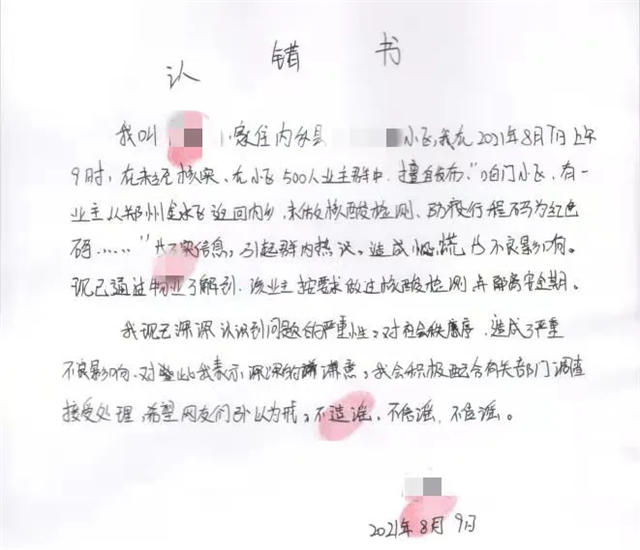 认 错 书
我叫 家住内乡县 小区,我在2021年8月7日上午
9时,在未经核实,在小区500人业主群中,擅自发布,"咱门小区,有一
业主从郑州金水区返回内乡,未做核酸检测,致使行程码为红色
码……"的不实信息,引起群内热议,造成恐慌的不良影响。
现已通过物业了解到,该业主按要求做过核酸检测并隔离安全期。
我现已深深认识到问题的严重性,对社会秩序,造成了严重
不良影响,对此我表示深深的歉意,我会积极配合有关部门调查
接受处理,希望网友们引以为戒,不造谣,不传谣,不信谣。
2021年8月9日